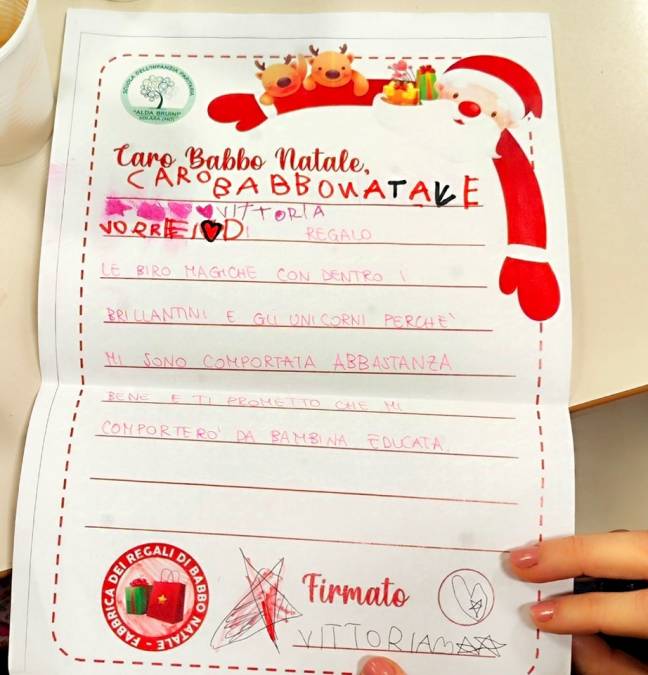 SCUOLA DELL'INFANZIA PARITARIA
"ALDA BRUINI"
SOLARA (MO)
Caro Babbo Natale,
CARO BABBO NATALE
VITTORIA
VORREI DI REGALO
LE BIRO MAGICHE CON DENTRO I
BRILLANTINI E GLI UNICORNI PERCHE'
MI SONO COMPORTATA ABBASTANZA
BENE E TI PROMETTO CHE MI
COMPORTERO' DA BAMBINA EDUCATA
FABBRICA DEI REGALI DI BABBO NATALE -
Firmato
VITTORIAM